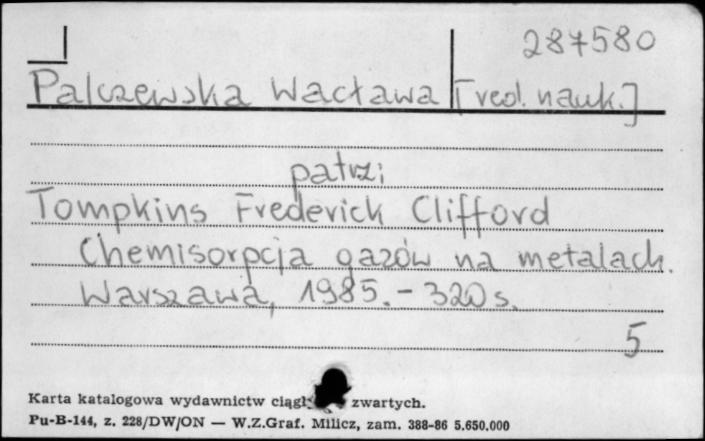 287580
Palczewska Wacława [red. nauk.]
patrz:
Tompkins Frederick Clifford
Chemisorpcja gazów na metalach.
Warszawa, 1985. - 320 s.
5
Karta katalogowa wydawnictw zwartych.
Pu-B-144, z. 228/DW/ON — W.Z.Graf. Milicz, zam. 388-86 5.650.000